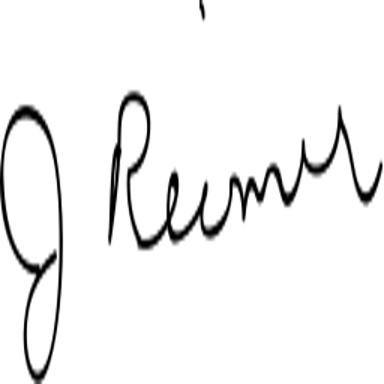 J Reimer